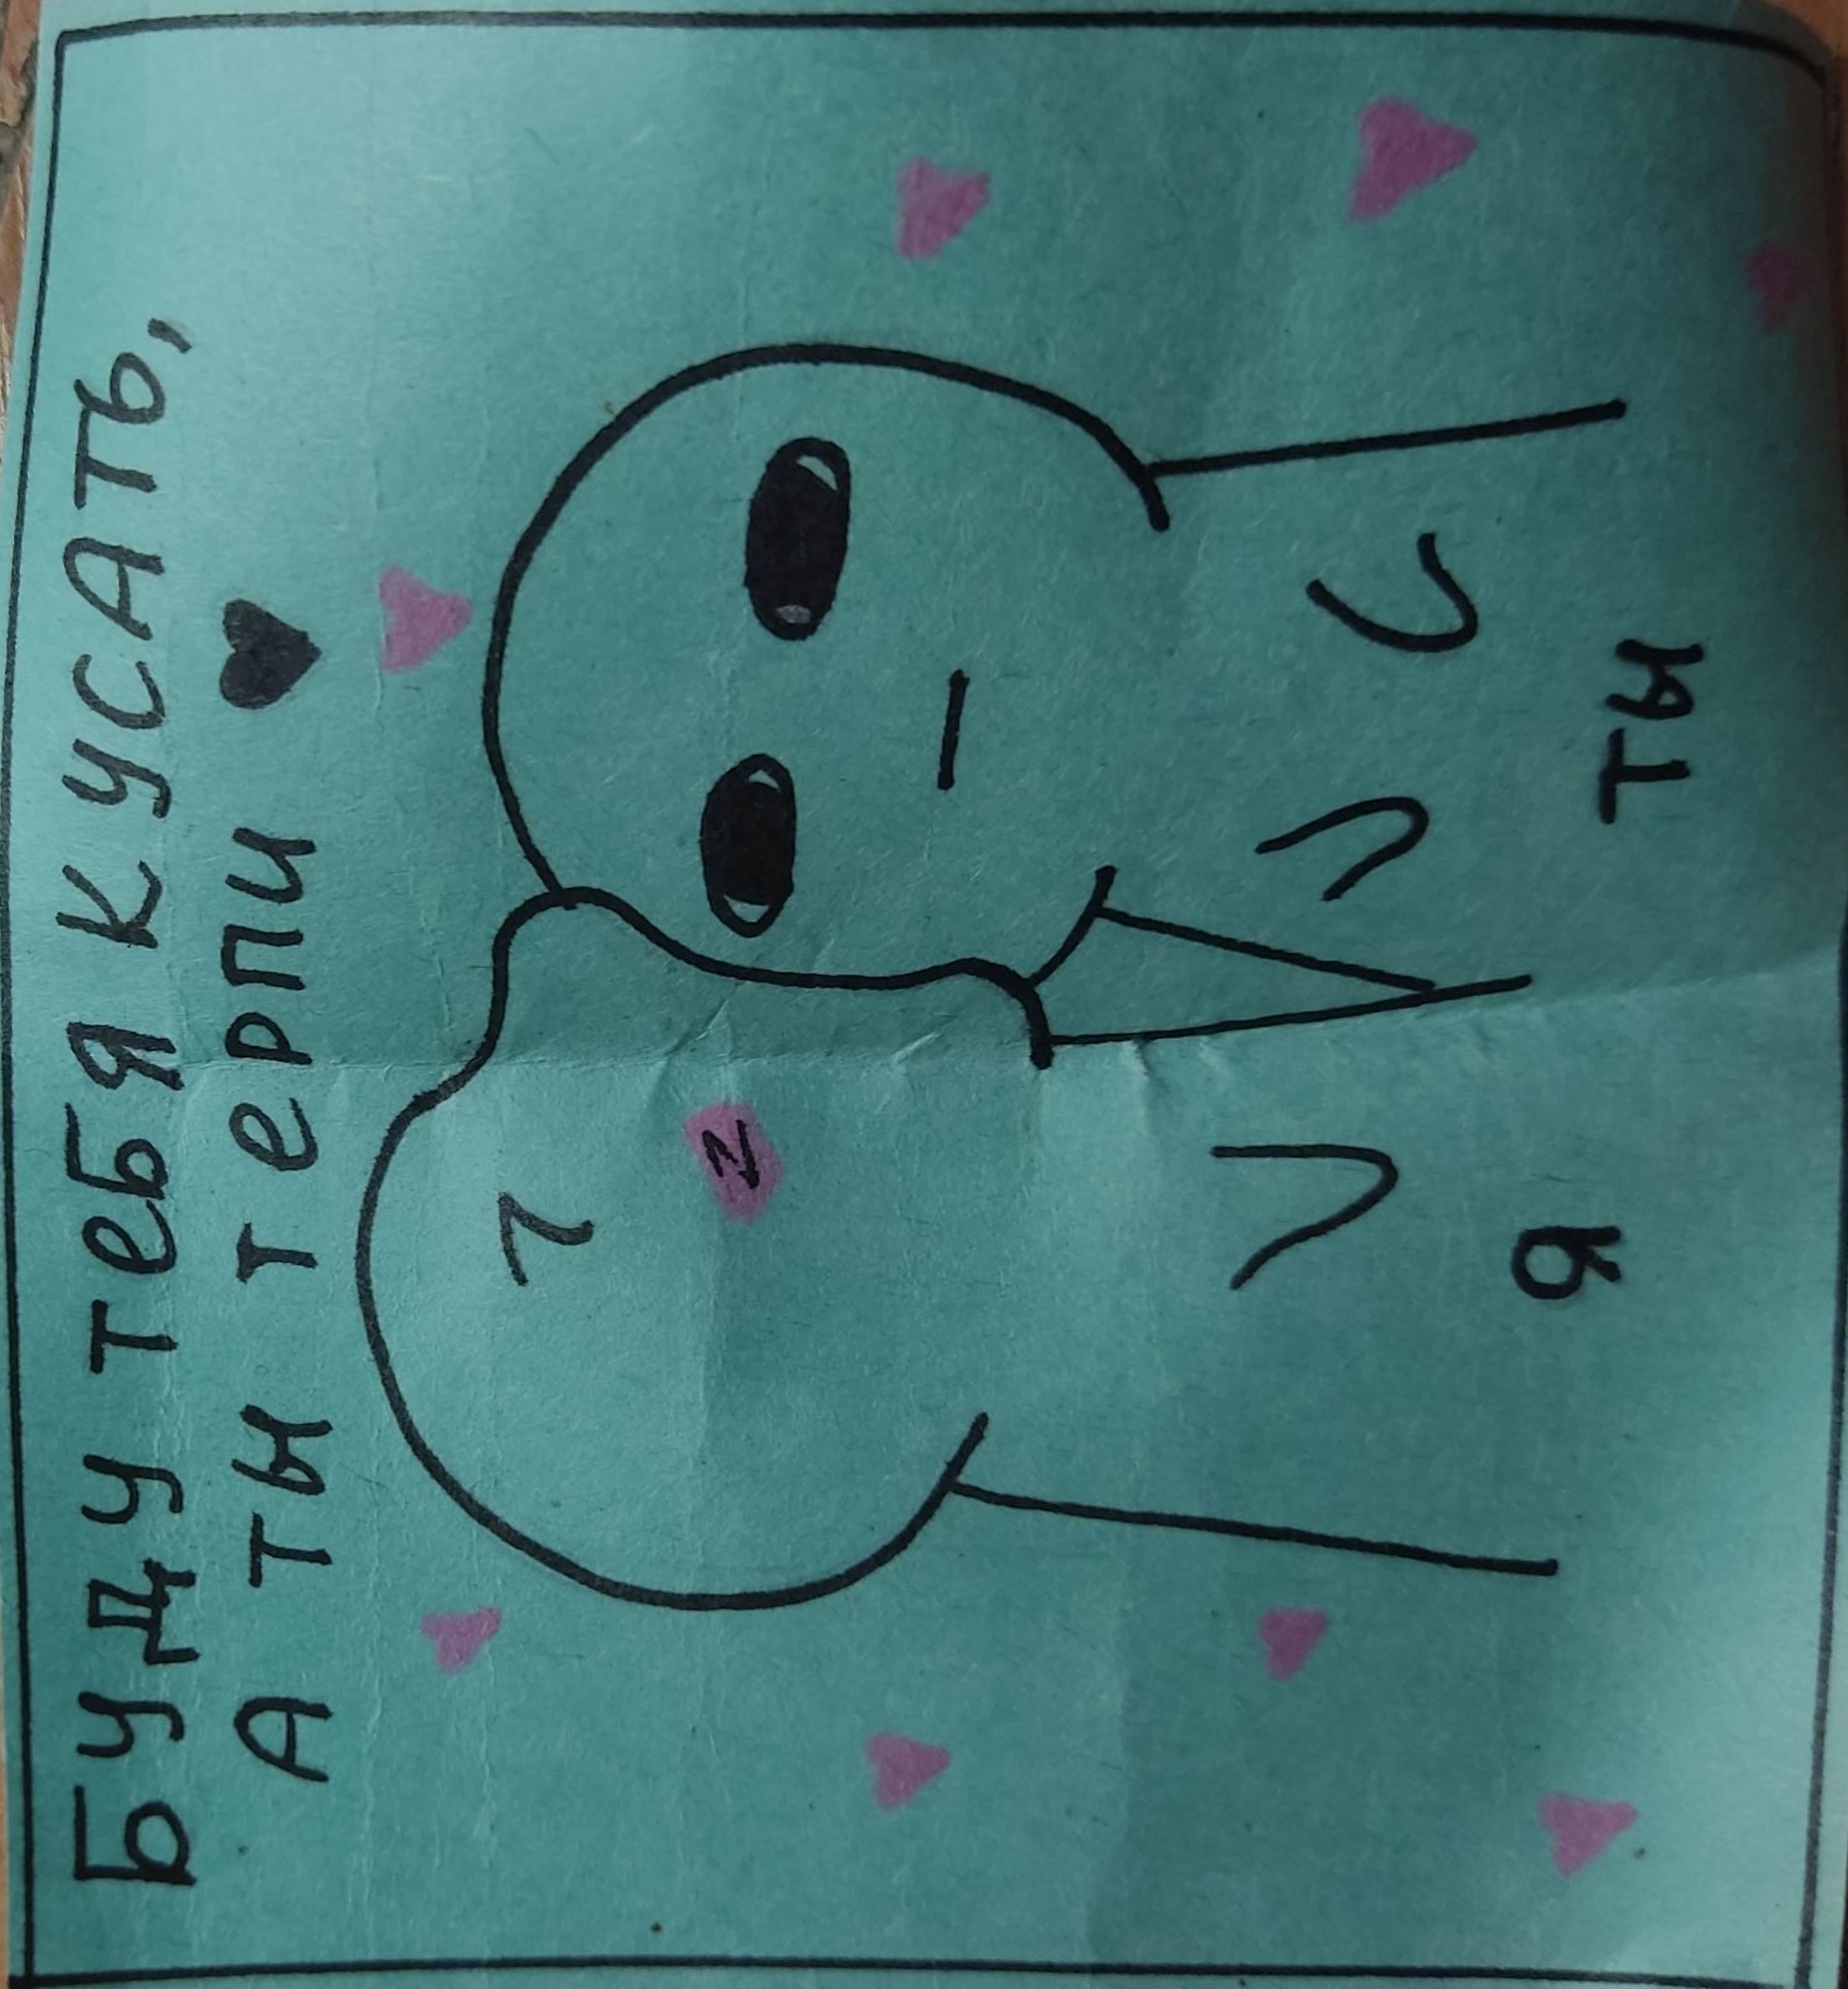 Буду тебя кусать,
А ты терпи ♥
Я
ты